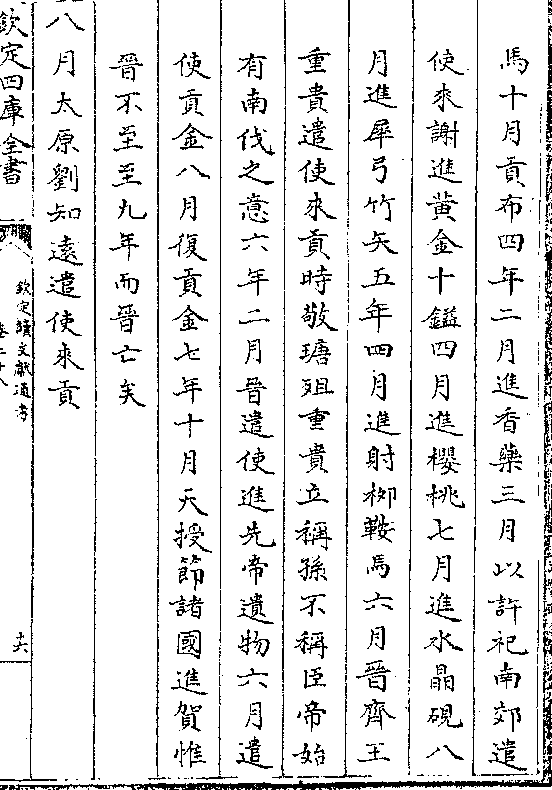 馬十月貢布四年二月進香藥三月以許祀南郊遣
使來謝進黃金十鎰四月進櫻桃七月進水晶硯八
月進犀弓竹矢五年四月進射柳鞍馬六月晉齊王
重貴遣使來貢時敬瑭殂重貴立稱孫不稱臣帝始
有南伐之意六年二月晉遣使進先帝遺物六月遣
使貢金八月復貢金七年十月天授節諸國進賀惟
晉不至至九年而晉亡矣
八月太原劉知遠遣使來貢
欽定四庫全書
欽定續文獻通考
卷二十八
十六